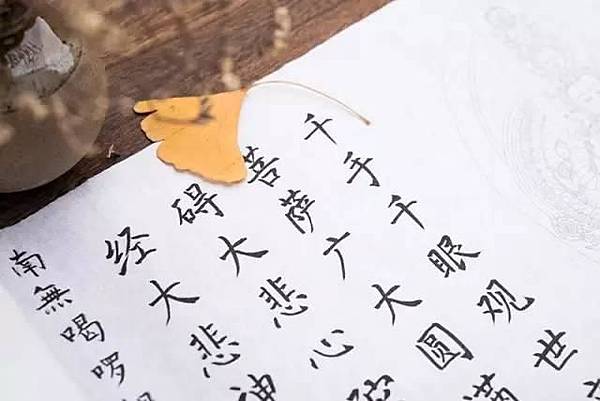 千手千眼观世
菩萨广大圆满
碍大悲心陀
经大悲神
南無喝啰